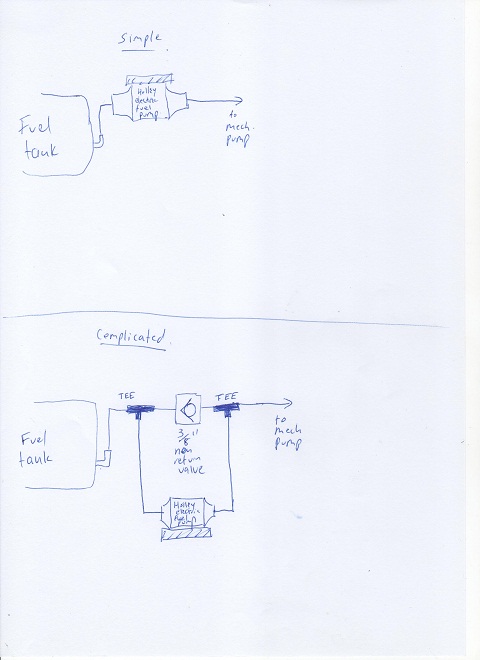 Simple.
Holley
electric
fuel
pump
Fuel
tank
to
mech.
pump
Complicated.
TEE
TEE
Fuel
tank
3/8"
non
return
valve
to
mech
pump
Holley
electric
fuel
pump